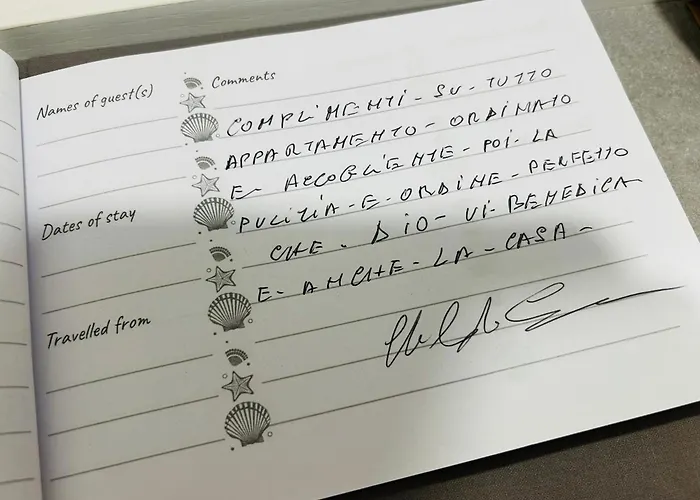 Names of guest(s)
Comments
COMPLIMENTI - SU - TUTTO
APPARTAMENTO - ORDINATO
E - ACCOGLIENTE - POI - LA
PULIZIA - E - ORDINE - PERFETTO
Dates of stay
CHE - DIO - VI - BENEDICA
E - ANCHE - LA - CASA -
Travelled from